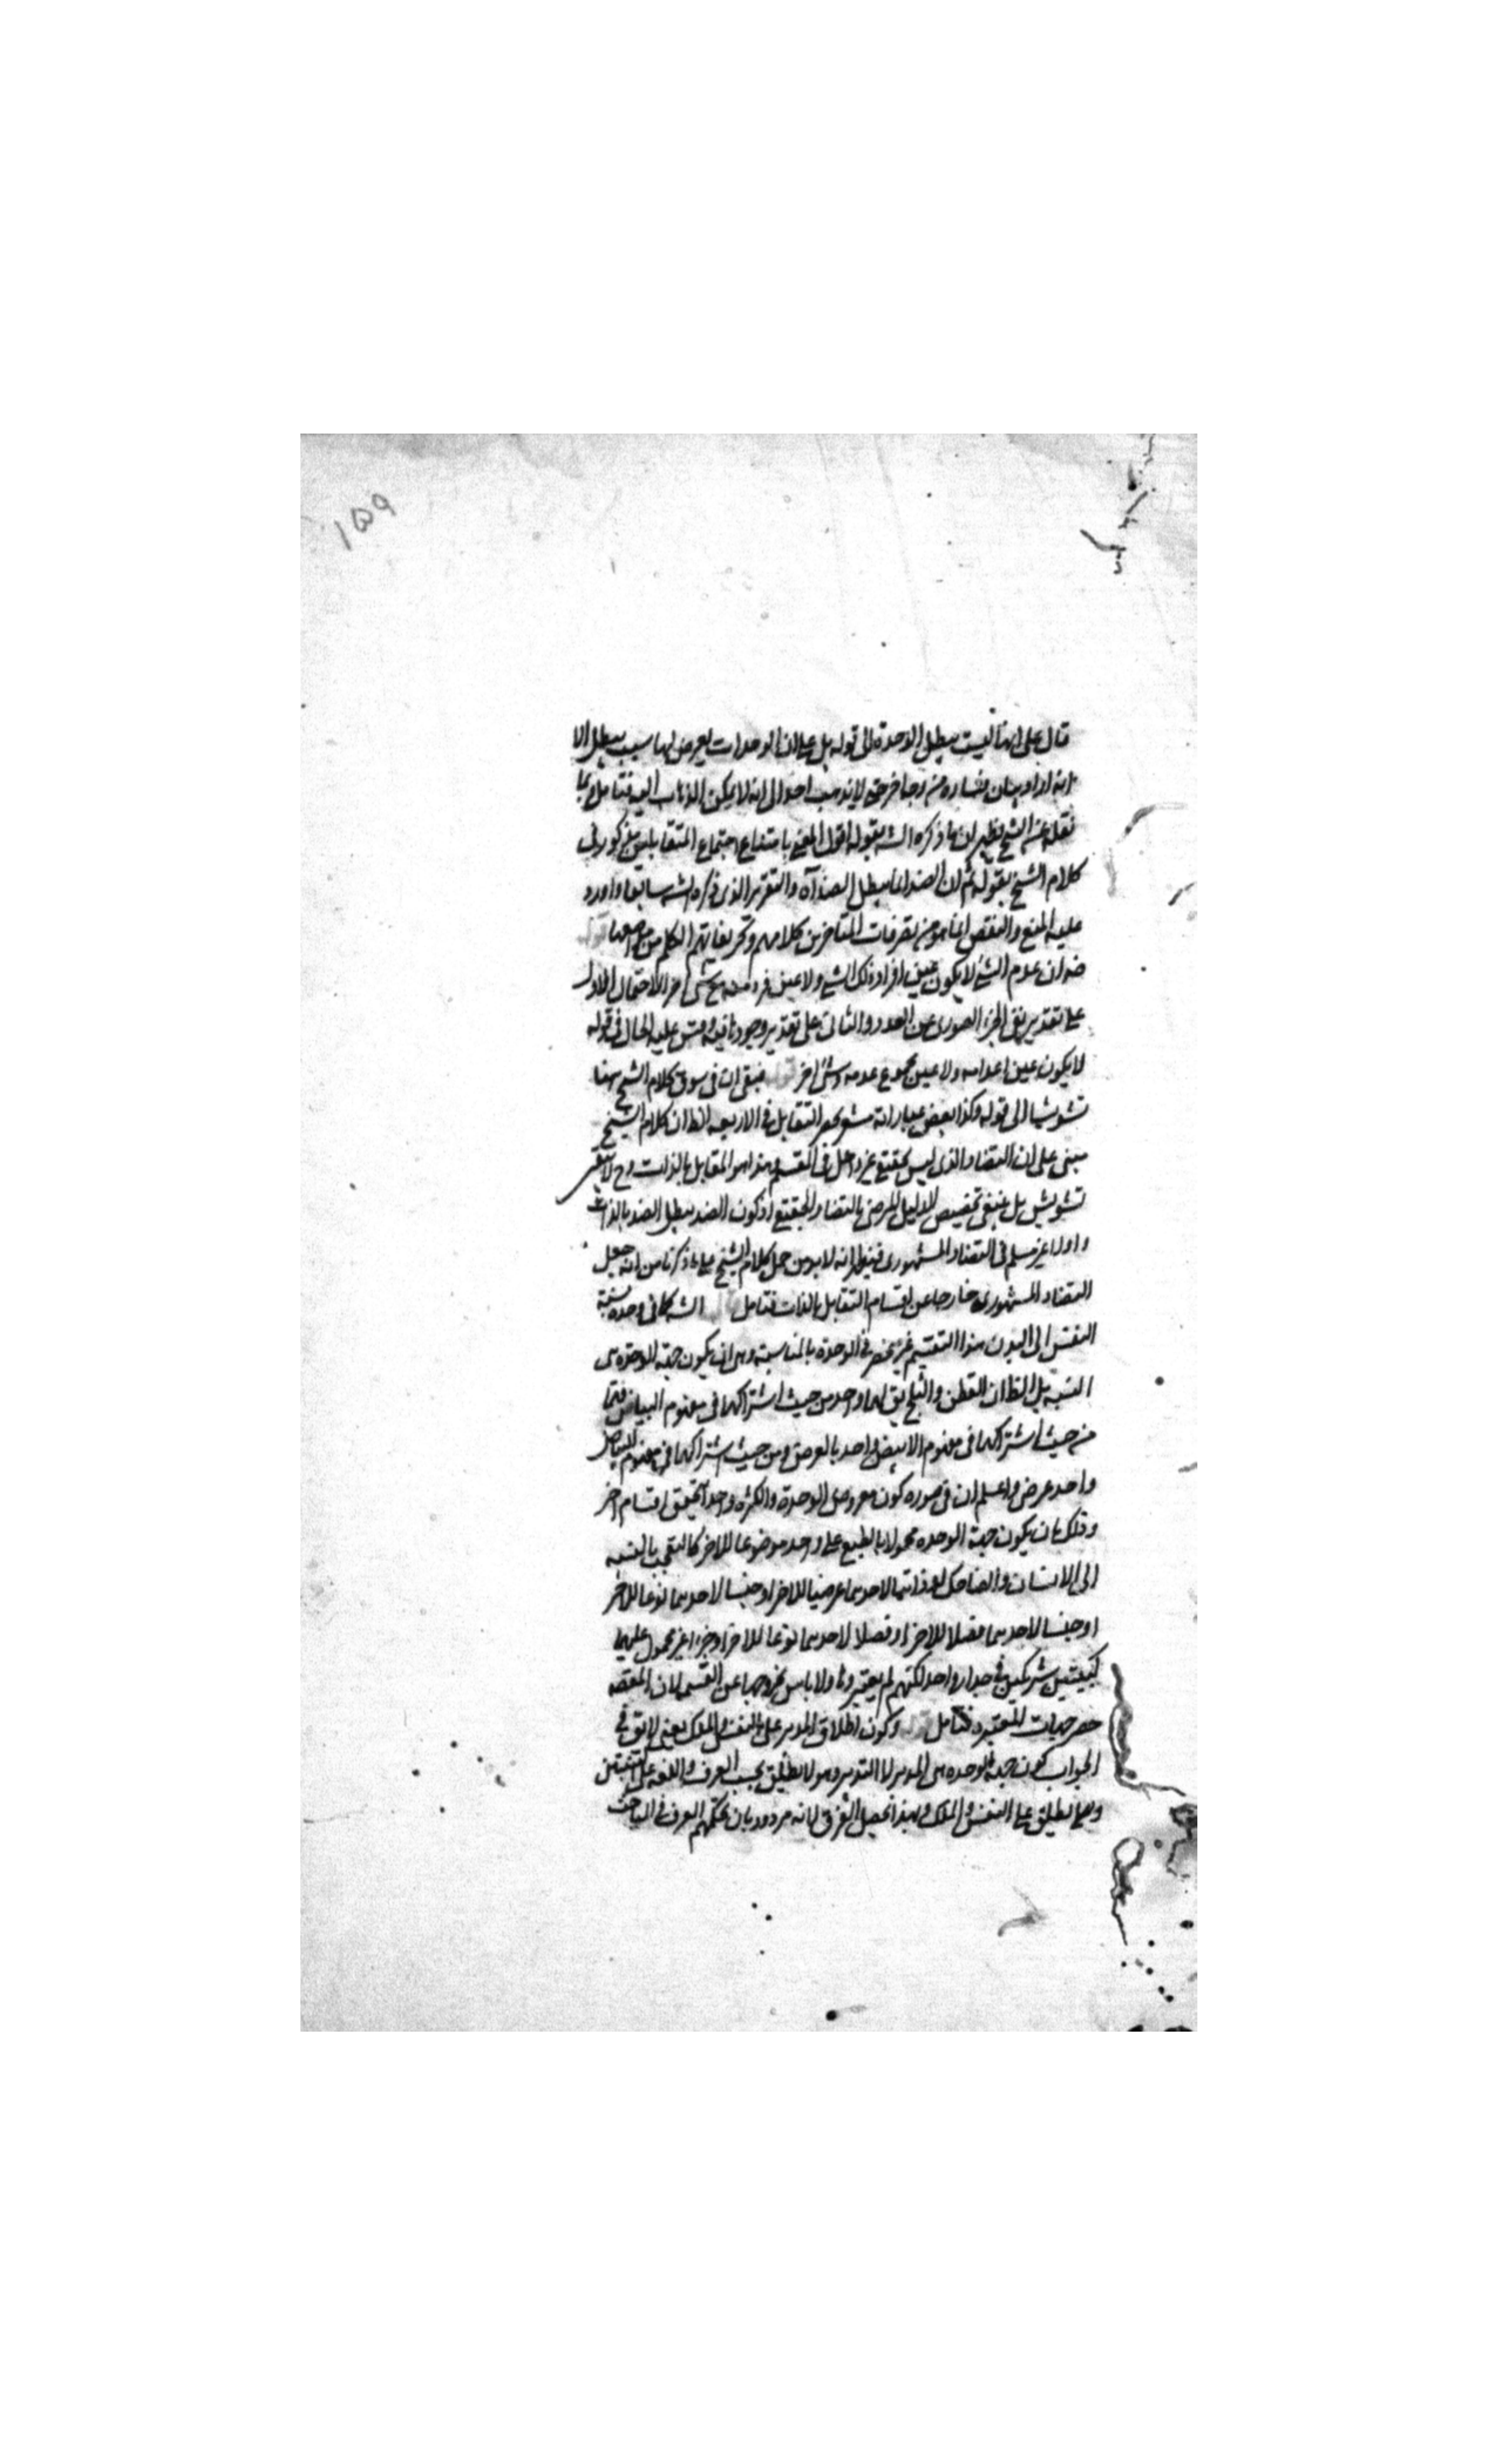 ١٥٩
قال على انها ليست يبطل الوحدة الى قوله بل على ان الوحدات يعرض لها سبب يبطل الا
انه اراد بيان فساده من وجه اخر حتى لا يذهب احد الى انه لا يمكن الذهاب اليه فتامل بما
نقله عن الشيخ يظهر ان ما ذكره الشه بقوله اقول المعنى بامتناع اجتماع المتقابلين مذكور فى
كلام الشيخ بقوله ثم ان الضد انما يبطل الضد آه والتقرير الذى ذكره الشه سابقا واورد
عليه المنع والنقض انما هو من تصرفات المتاخرين كلامهم وتحريفاتهم الكلم عن مواضعها قوله
ضه ان عدم الشئ لا يكون عين افراد ذلك الشئ ولا عين فرد منه مع شئ اخر الاحتمال الاول
على تقدير نفى الجزء الصورى عن العدد والثانى على تقدير وجوده فيه وقس عليه الحال فى قوله
لا يكون عين اعدامه ولا عين مجموع عدمه وشئ اخر قوله فبقى ان فى سوق كلام الشيخ ههنا
تشويشا الى قوله وكذا بعض عباراته مشعر بحصر التقابل فى الاربعه الظ ان كلام الشيخ
مبنى على ان التضاد الذى ليس بحقيقى غير داخل فى القسم وهذا هو المقابل بالذات وح لا يبقى
تشويش بل ينبغى تخصيص الدليل المرضى بالتضاد الحقيقى اذ كون الضد يبطل الضد بالذات
واولا غير مسلم فى التضاد المشهورى فيظهر انه لا بد من حمل كلام الشيخ على ما ذكرنا من انه جعل
التضاد المشهورى خارجا عن اقسام التقابل بالذات فتامل قال الشه كما فى وحده نسبة
النفس الى البدن هذا التقسيم غير منحصر فى الوحدة بالمناسبة وهى ان يكون جهة الوحدة هى
النسبه بل الظ ان القطن والثلج يق لهما واحد من حيث اشتراكهما فى مفهوم البياض فتما
من حيث اشتراكهما فى مفهوم الابيض واحد بالعرض ومن حيث اشتراكهما فى مفهوم البياض
واحد عرضى واعلم ان فى صوره كون معروض الوحدة والكثره واحدا تحقيق اقسام اخر
وذلك بان يكون جهة الوحده محمولا بالطبع على واحد موضوعا للاخر كالتعجب بالنسبه
الى الانسان والضاحك او ذاتيا لاحدهما عرضيا للاخر او جنسا لاحدهما نوعا للاخر
او جنسا لاحدهما فصلا للاخر او فصلا لاحدهما نوعا للاخر او جزءا غير محمول عليهما
كبيتين شريكين فى جدار واحد لكنهم لم يعتبروها ولا باس بخروجها عن القسم لان المقصد
حصر جهات المعتبره فتامل قوله وكون اطلاق المدبر على النفس والملك يعنى لا يق فى
الجواب كون جهة الوحده هى المدبر لا التدبير وهو لا يطلق بحسب العرف واللغه على النسبتين
وانما يطلق على النفس والملك وبهذا تحصيل الفرق لانه مردود بان تحكيم العرف فى المباحث